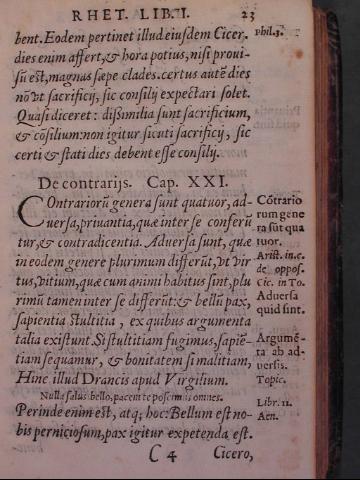 RHET. LIB. I. 23
bent. Eodem pertinet illud eiusdem Cicer.
Phil. 3.
dies enim affert, & hora potius, nisi proui-
sũ est, magnas sæpe clades. certus autẽ dies
nõ vt sacrificij, sic consilij expectari solet.
Quasi diceret: dissimilia sunt sacrificium,
& cõsilium: non igitur sicuti sacrificij, sic
certi & stati dies debent esse consilij.
De contrarijs. Cap. XXI.
COntrariorũ genera sunt quatuor, ad-
uersa, priuantia, quæ inter se conferũ
tur, & contradicentia. Aduersa sunt, quæ
in eodem genere plurimum differũt, vt vir
tus, vitium, quæ cum animi habitus sint, plu
rimũ tamen inter se differũt: & bellũ pax,
sapientia stultitia, ex quibus argumenta
talia existunt. Si stultitiam fugimus, sapiẽ-
tiam sequamur, & bonitatem si malitiam,
Hinc illud Drancis apud Virgilium.
Nulla salus bello, pacem te poscimus omnes.
Perinde enim est, atq; hoc: Bellum est no-
bis perniciosum, pax igitur expetenda est.
Cõtrario
rum gene
ra sũt qua
tuor.
Arist. in.c.
de oppos.
Cic. in To.
Aduersa
quid sint.
Argumẽ-
ta ab ad-
uersis.
Topic.
Lib. 11.
Aen.
C 4 Cicero,